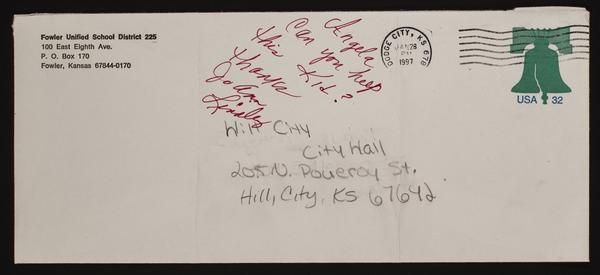 Fowler Unified School District 225
100 East Eighth Ave.
P. O. Box 170
Fowler, Kansas 67844-0170
Angela
Can you help
this Kid?
Thanks
JoAnn
DODGE CITY, KS 678
JAN 28
PM
1997
USA 32
Will City
City Hall
205 N. Pomeroy St.
Hill, City, KS 67642